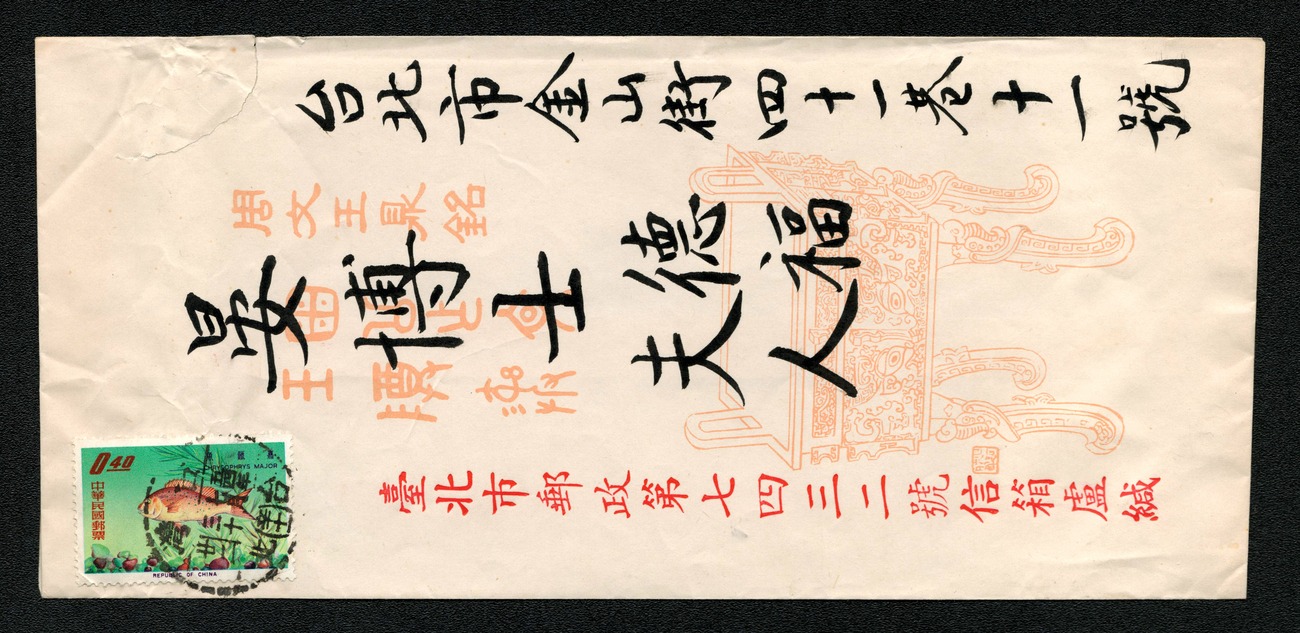 台北市金山街四十一巷十一號
周文王鼎銘
晏博士德福
夫人
臺北市郵政第七四三二號信箱盧緘
0.40
CHRYSOPHRYS MAJOR
中華民國郵票
REPUBLIC OF CHINA